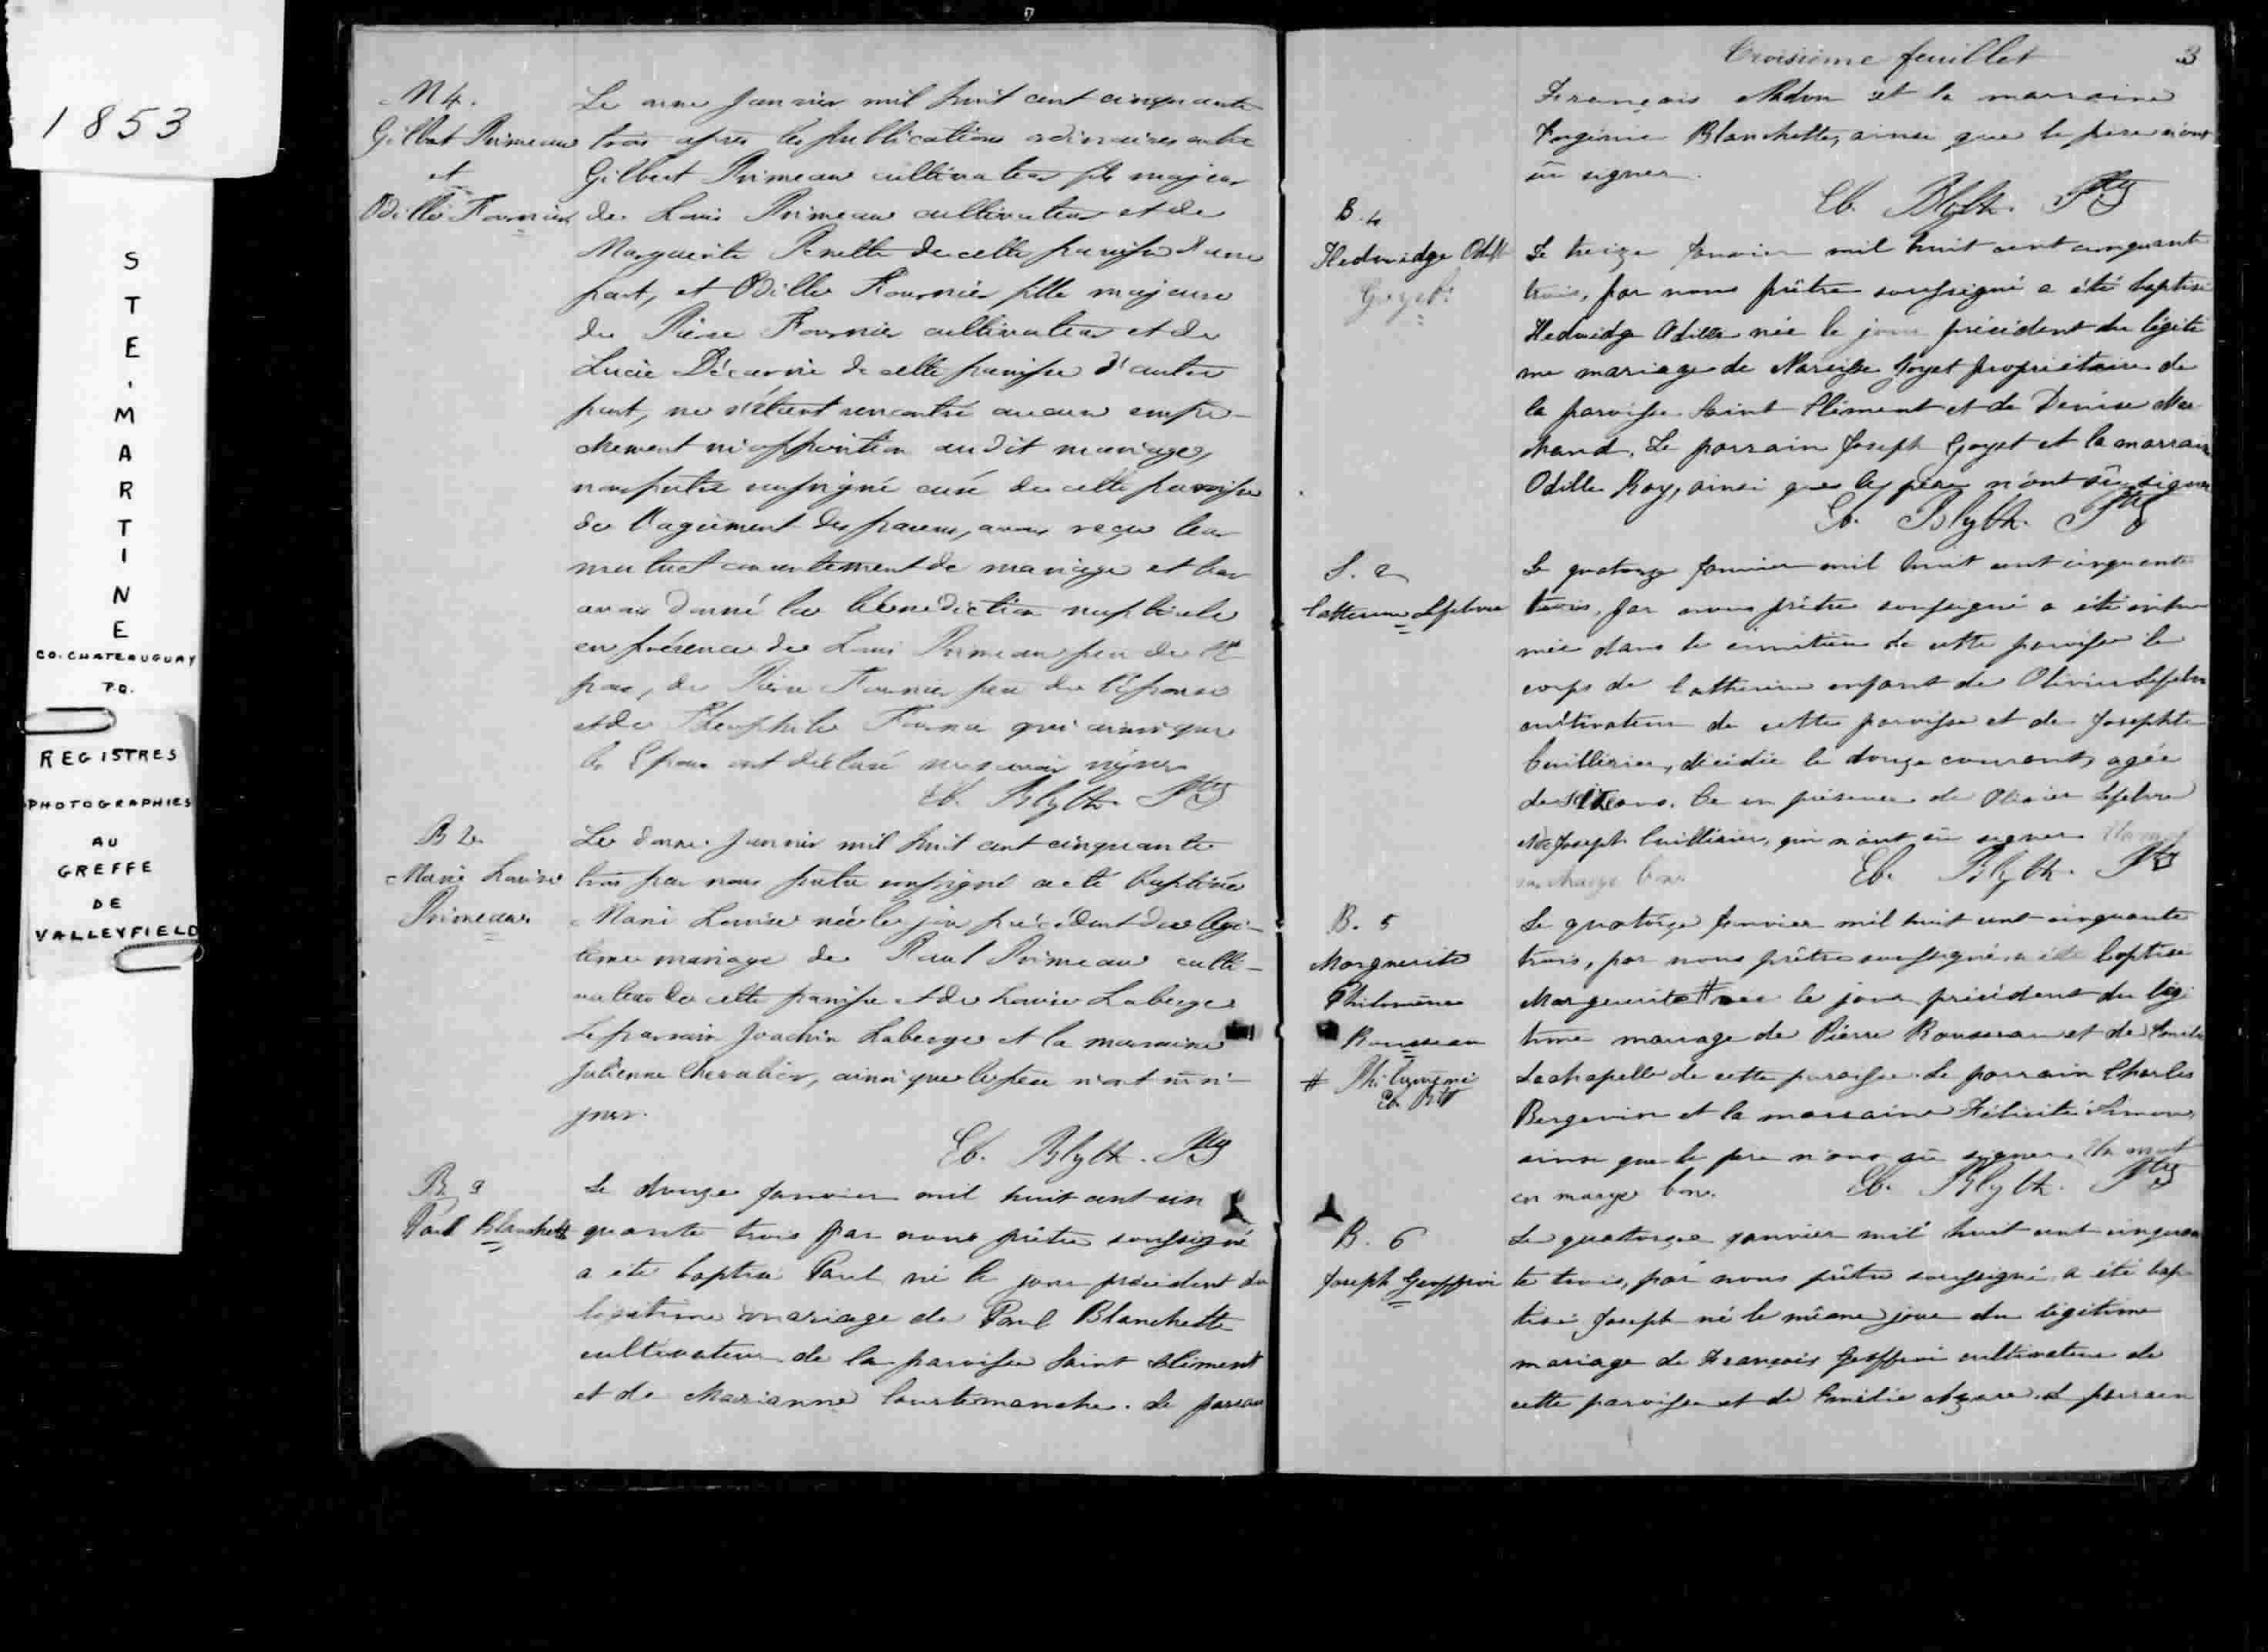 1853
STE. MARTINE
CO. CHATEAUGUAY
P.Q.
REGISTRES
PHOTOGRAPHIES
AU
GREFFE
DE
VALLEYFIELD
M 4.
Gilbert Primeau
et
Odille Fournier
Le onze Janvier mil huit cent cinquante
trois après les publications ordinaires entre
Gilbert Primeau cultivateur fils majeur
de Louis Primeau cultivateur et de
Marguerite de cette paroisse d'une
part, et Odille Fournier fille majeure
de Pierre Fournier cultivateur et de
Lucie Décarrie de cette paroisse d'autre
part, ne s'étant rencontré aucun empê-
chement ni opposition au dit mariage,
nous prêtre soussigné curé de cette paroisse
de l'agrément des parens, avons reçu leur
mutuel consentement de mariage et leur
avons donné la bénédiction nuptiale
en présence de Louis Primeau père de l'E
poux, de Pierre Fournier père de l'Epouse
et de Théophile qui ainsi que
les Epoux ont déclaré ne savoir signer
Eb. Blyth. Ptre
B 2.
Marie Louise
Primeau
Le douze Janvier mil huit cent cinquante
trois par nous prêtre soussigné a été baptisée
Marie Louise née le jour précédent du légi-
time mariage de Paul Primeau culti-
vateur de cette paroisse et de Louise Laberge
Le parrain Joachin Laberge et la marraine
Julienne Chevalier, ainsi que le père n'ont sû si-
gner.
Eb. Blyth. Ptre
B. 3
Paul Blanchette
Le douze Janvier mil huit cent cin
quante trois par nous prêtre soussigné
a été baptisé Paul né le jour précédent du
légitime mariage de Paul Blanchette
cultivateur de la paroisse Saint Clément
et de Marianne Courtemanche. Le parrain
Troisième feuillet 3
François Nadon et la marraine
Blanchette, ainsi que le père n'ont
sû signer.
Eb. Blyth. Ptre
B. 4
Hedwidge Odille
Goyet
Le treize Janvier mil huit cent cinquante
trois, par nous prêtre soussigné a été baptisé
Hedwidge Odille née le jour précédent du légiti
me mariage de Narcisse Goyet propriétaire de
la paroisse Saint Clément et de Denise Mar
chand. Le parrain Joseph Goyet et la marraine
Odille Roy, ainsi que le père n'ont sû signer
Eb. Blyth. Ptre
S. 2
Catherine Lefebvre
Le quatorze Janvier mil huit cent cinquante
trois, par nous prêtre soussigné a été inhu
mée dans le cimetière de cette paroisse le
corps de Catherine enfant de Olivier Lefebvre
cultivateur de cette paroisse et de Josephte
Cuillerier, décédée le douze courant, agée
de ans. Ce en présence de Olivier Lefebvre
et de Joseph Cuillerier, qui n'ont sû signer. Un mot
surchargé bon. Eb. Blyth. Ptre
B. 5
Marguerite
Philomène
Rousseau
# Philomène
Eb. B.
Le quatorze Janvier mil huit cent cinquante
trois, par nous prêtre soussigné a été baptisée
Marguerite # née le jour précédent du légi
time mariage de Pierre Rousseau et de
Lachapelle de cette paroisse. Le parrain Charles
Bergevin et la marraine Félicité Simon,
ainsi que le père n'ont sû signer. Un mot
en marge bon. Eb. Blyth. Ptre
B. 6
Joseph Geoffroi
Le quatorze Janvier mil huit cent cinquan
te trois, par nous prêtre soussigné a été bap
tisé Joseph né le même jour du légitime
mariage de François Geoffroi cultivateur de
cette paroisse et de Emélie. Le parrain